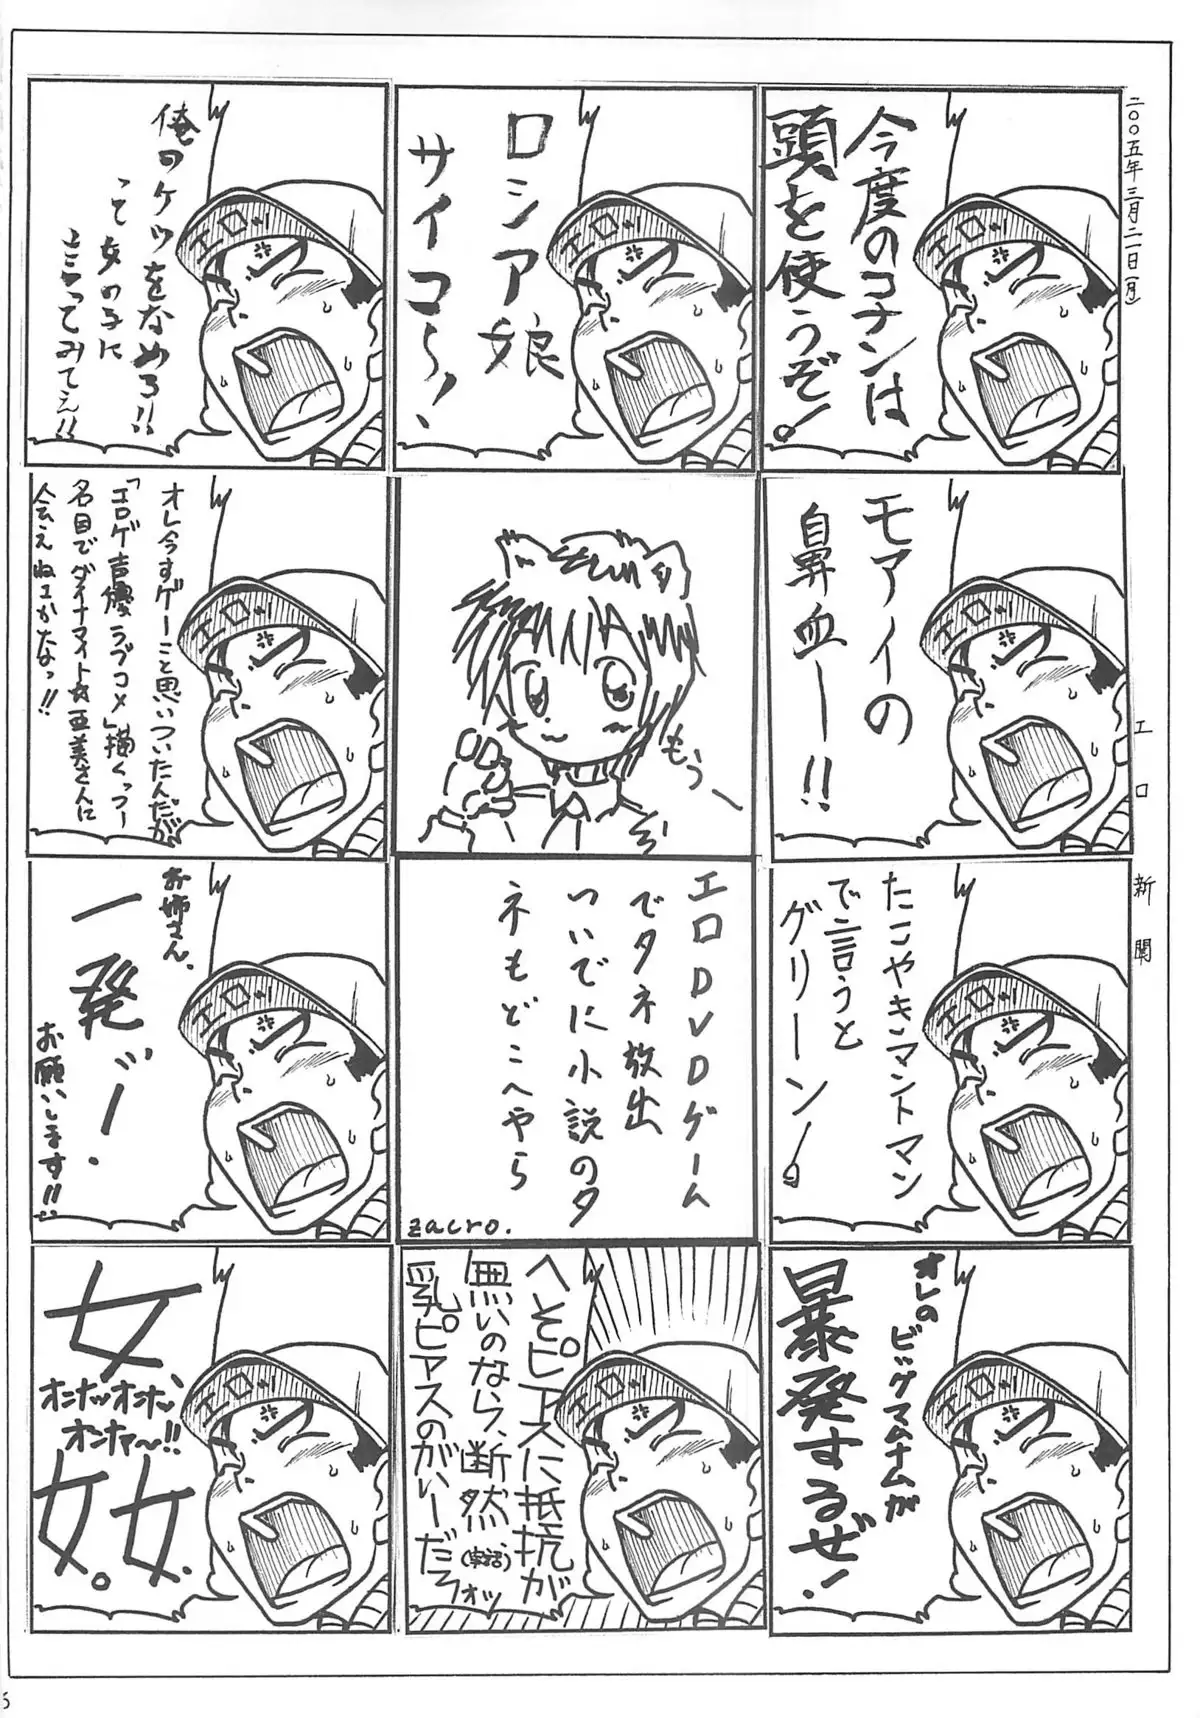 二〇〇五年三月二一日(月)
エロ新聞
今度のコナンは
頭を使うぞ!
エロッ!
ロシア娘
サイコ〜!
エロッ!
俺のケツをなめろ!!
って女の子に
言ってみてぇ!!
エロッ!
モアイの
鼻血ー!!
エロッ!
もうー
オレ今すげーこと思いついたんだが
「エロゲ声優ラブコメ」描くっつー
名目でダイナマイト☆亜美さんに
会えねェかなっ!!
エロッ!
たこやきマントマン
で言うと
グリーン!
エロッ!
エロDVDゲーム
でタネ放出
ついでに小説のタ
ネもどこへやら
zacro.
お姉さん、
一発ッ!
お願いします!!
エロッ!
オレの
ビッグマムナムが
暴発するぜ!
エロッ!
へそピアスに抵抗が
無いのなら、断然、(実話)
乳ピアスのがいーだろォッ
エロッ!
女、
オンナッオンナッ
オンナァ〜!!
女女。
エロッ!